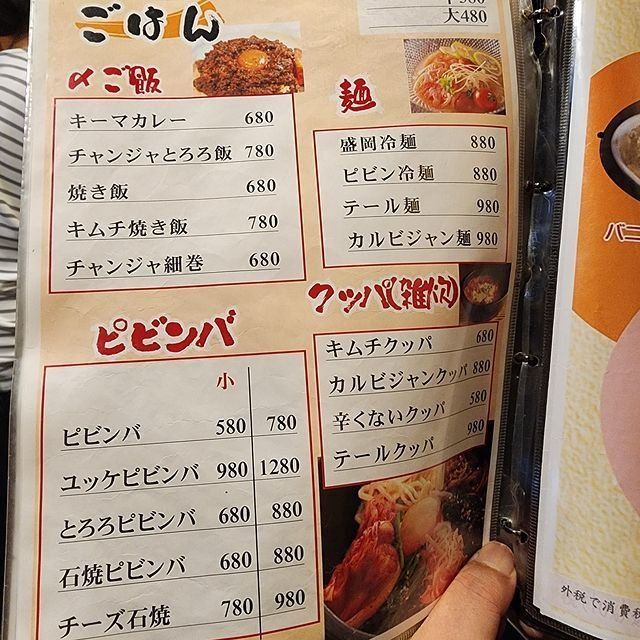 ごはん
大480
〆ご飯
キーマカレー 680
チャンジャとろろ飯 780
焼き飯 680
キムチ焼き飯 780
チャンジャ細巻 680
麺
盛岡冷麺 880
ピビン冷麺 880
テール麺 980
カルビジャン麺 980
ピビンバ
小
ピビンバ 580 780
ユッケピビンバ 980 1280
とろろピビンバ 680 880
石焼ピビンバ 680 880
チーズ石焼 780 980
クッパ(雑炊)
キムチクッパ 680
カルビジャンクッパ 880
辛くないクッパ 580
テールクッパ 980
バニ
外税で消費税